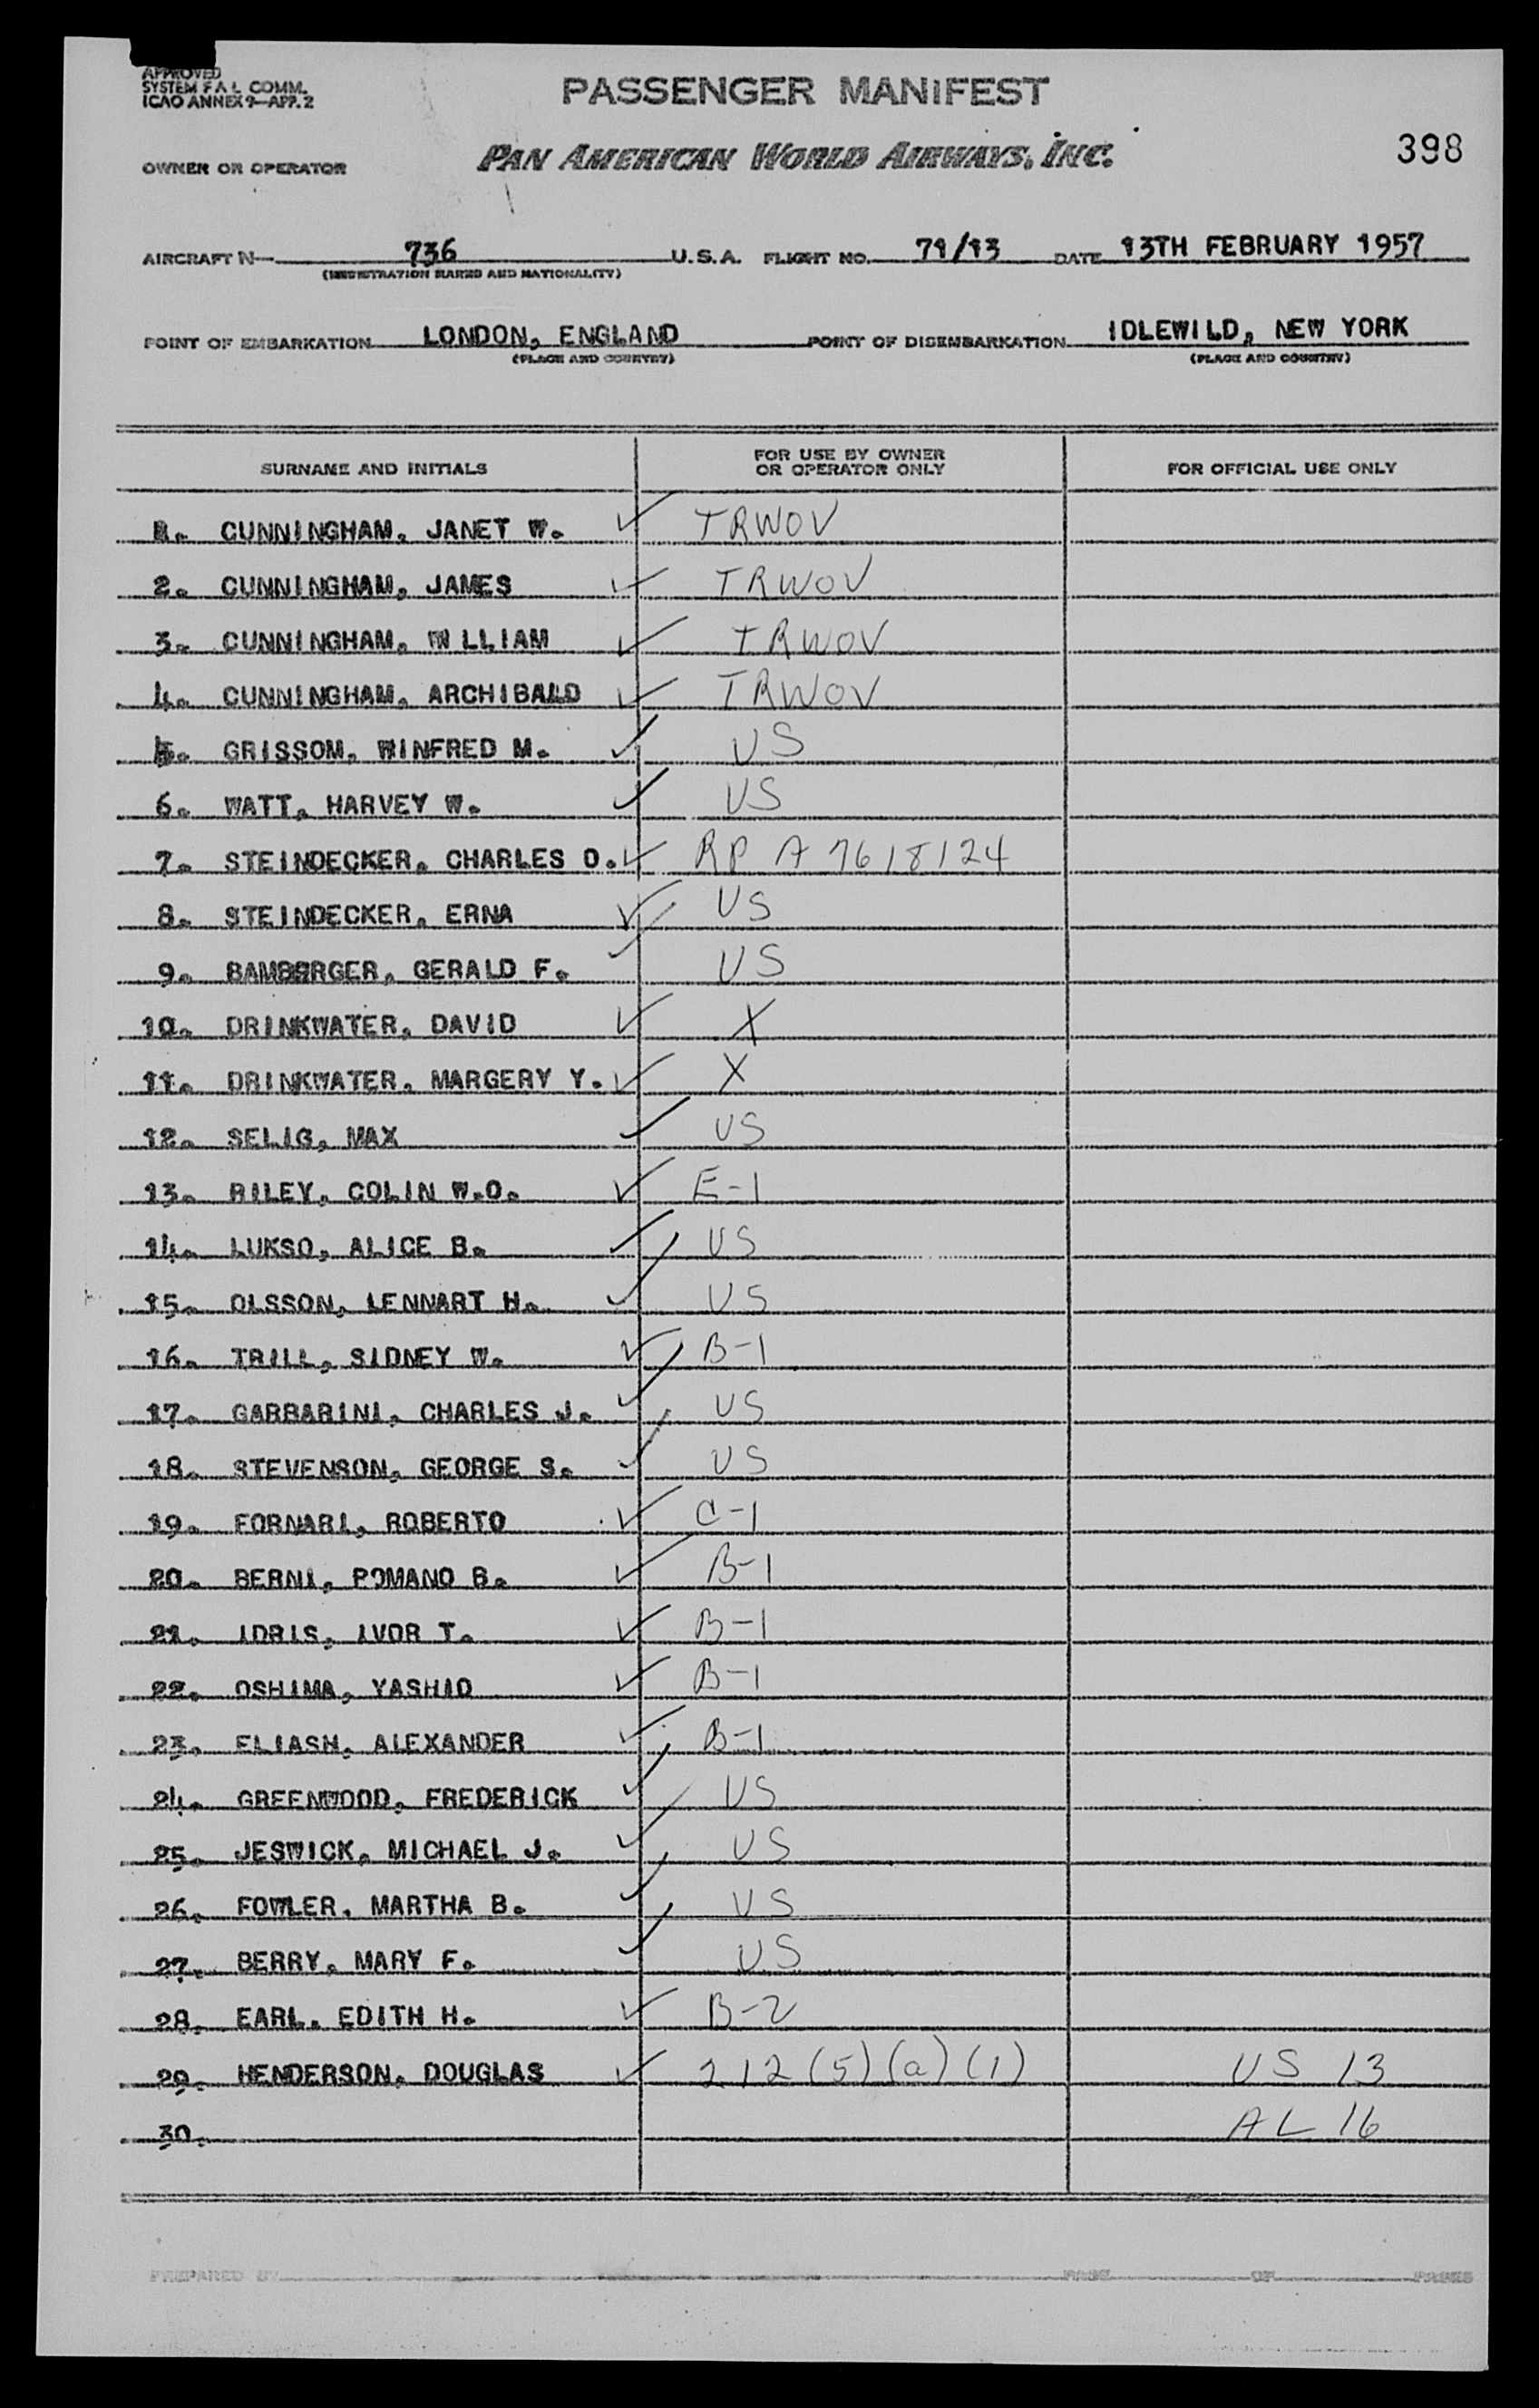 APPROVED
SYSTEM F A L COMM.
ICAO ANNEX 9—APP. 2
PASSENGER MANIFEST
OWNER OR OPERATOR PAN AMERICAN WORLD AIRWAYS, INC.
398
AIRCRAFT N— 736 U.S.A. FLIGHT NO. 71/13 DATE 13TH FEBRUARY 1957
(REGISTRATION MARKS AND NATIONALITY)
POINT OF EMBARKATION LONDON, ENGLAND POINT OF DISEMBARKATION IDLEWILD, NEW YORK
(PLACE AND COUNTRY) (PLACE AND COUNTRY)
SURNAME AND INITIALS FOR USE BY OWNER OR OPERATOR ONLY FOR OFFICIAL USE ONLY
1. CUNNINGHAM, JANET W. ✓ TRWOV
2. CUNNINGHAM, JAMES ✓ TRWOV
3. CUNNINGHAM, W LLIAM ✓ TRWOV
4. CUNNINGHAM, ARCHIBALD ✓ TRWOV
5. GRISSOM, WINFRED M. ✓ US
6. WATT, HARVEY W. ✓ US
7. STEINDECKER, CHARLES O. ✓ RP A 7618124
8. STEINDECKER, ERNA ✓ US
9. BAMBERGER, GERALD F. ✓ US
10. DRINKWATER, DAVID ✓ X
11. DRINKWATER, MARGERY Y. ✓ X
12. SELIG, MAX ✓ US
13. RILEY, COLIN W.O. ✓ E-1
14. LUKSO, ALICE B. ✓ US
15. OLSSON, LENNART H. ✓ US
16. TRILL, SIDNEY W. ✓ B-1
17. GARBARINI, CHARLES J. ✓ US
18. STEVENSON, GEORGE S. ✓ US
19. FORNARI, ROBERTO ✓ C-1
20. BERNI, ROMANO B. ✓ B-1
21. IDRIS, IVOR T. ✓ B-1
22. OSHIMA, YASHIO ✓ B-1
23. ELIASH, ALEXANDER ✓ B-1
24. GREENWOOD, FREDERICK ✓ US
25. JESWICK, MICHAEL J. ✓ US
26. FOWLER, MARTHA B. ✓ US
27. BERRY, MARY F. ✓ US
28. EARL, EDITH H. ✓ B-2
29. HENDERSON, DOUGLAS ✓ 212(5)(a)(1) US 13
30. AL 16
PREPARED BY PAGE OF PAGES